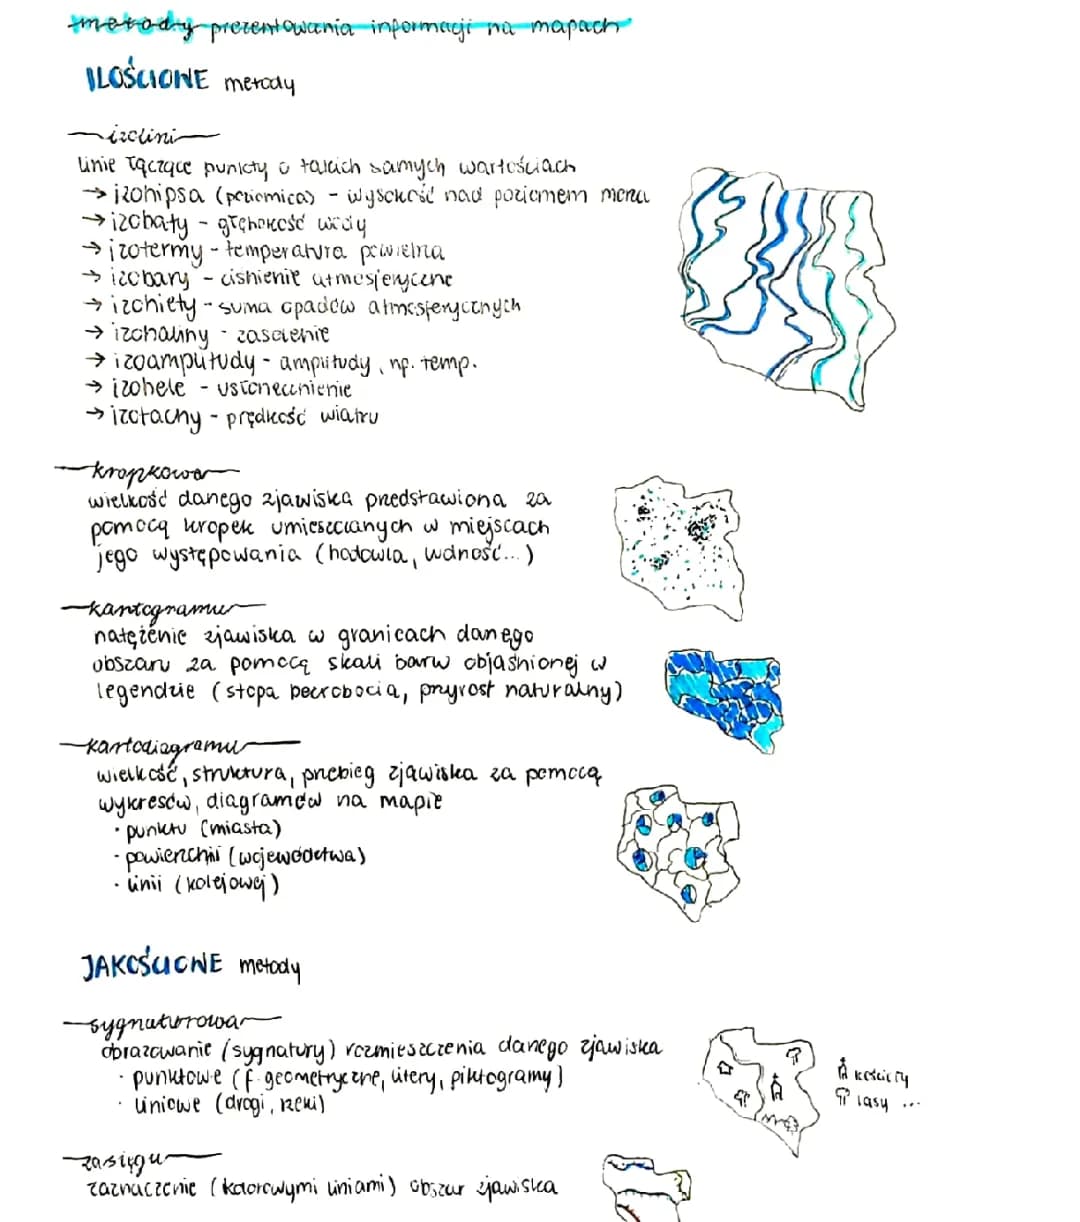 metody prezentowania informacji na mapach
ILOŚCIOWE metody
izolinii
linie łączące punkty o takich samych wartościach
→ izohipsa (poziomica) - wysokość nad poziomem morza
→ izobaty - głębokość wody
→ izotermy - temperatura powietrza
→ izobary - ciśnienie atmosferyczne
→ izohiety - suma opadów atmosferycznych
→ izohaliny - zasolenie
→ izoamplitudy - amplitudy, np. temp.
→ izohele - usłonecznienie
→ izotachy - prędkość wiatru
kropkowa
wielkość danego zjawiska przedstawiona za
pomocą kropek umieszczanych w miejscach
jego występowania (hodowla, ludność...)
kartogramu
natężenie zjawiska w granicach danego
obszaru za pomocą skali barw objaśnionej w
legendzie (stopa bezrobocia, przyrost naturalny)
kartodiagramu
wielkość, struktura, przebieg zjawiska za pomocą
wykresów, diagramów na mapie
· punktu (miasta)
· powierzchni (województwa)
· linii (kolejowej)
JAKOŚCIOWE metody
sygnaturowa
obrazowanie (sygnatury) rozmieszczenia danego zjawiska
· punktowe (f. geometryczne, litery, piktogramy)
· liniowe (drogi, rzeki)
kościoły
lasy ...
zasięgu
zaznaczenie (kolorowymi liniami) obszar zjawiska